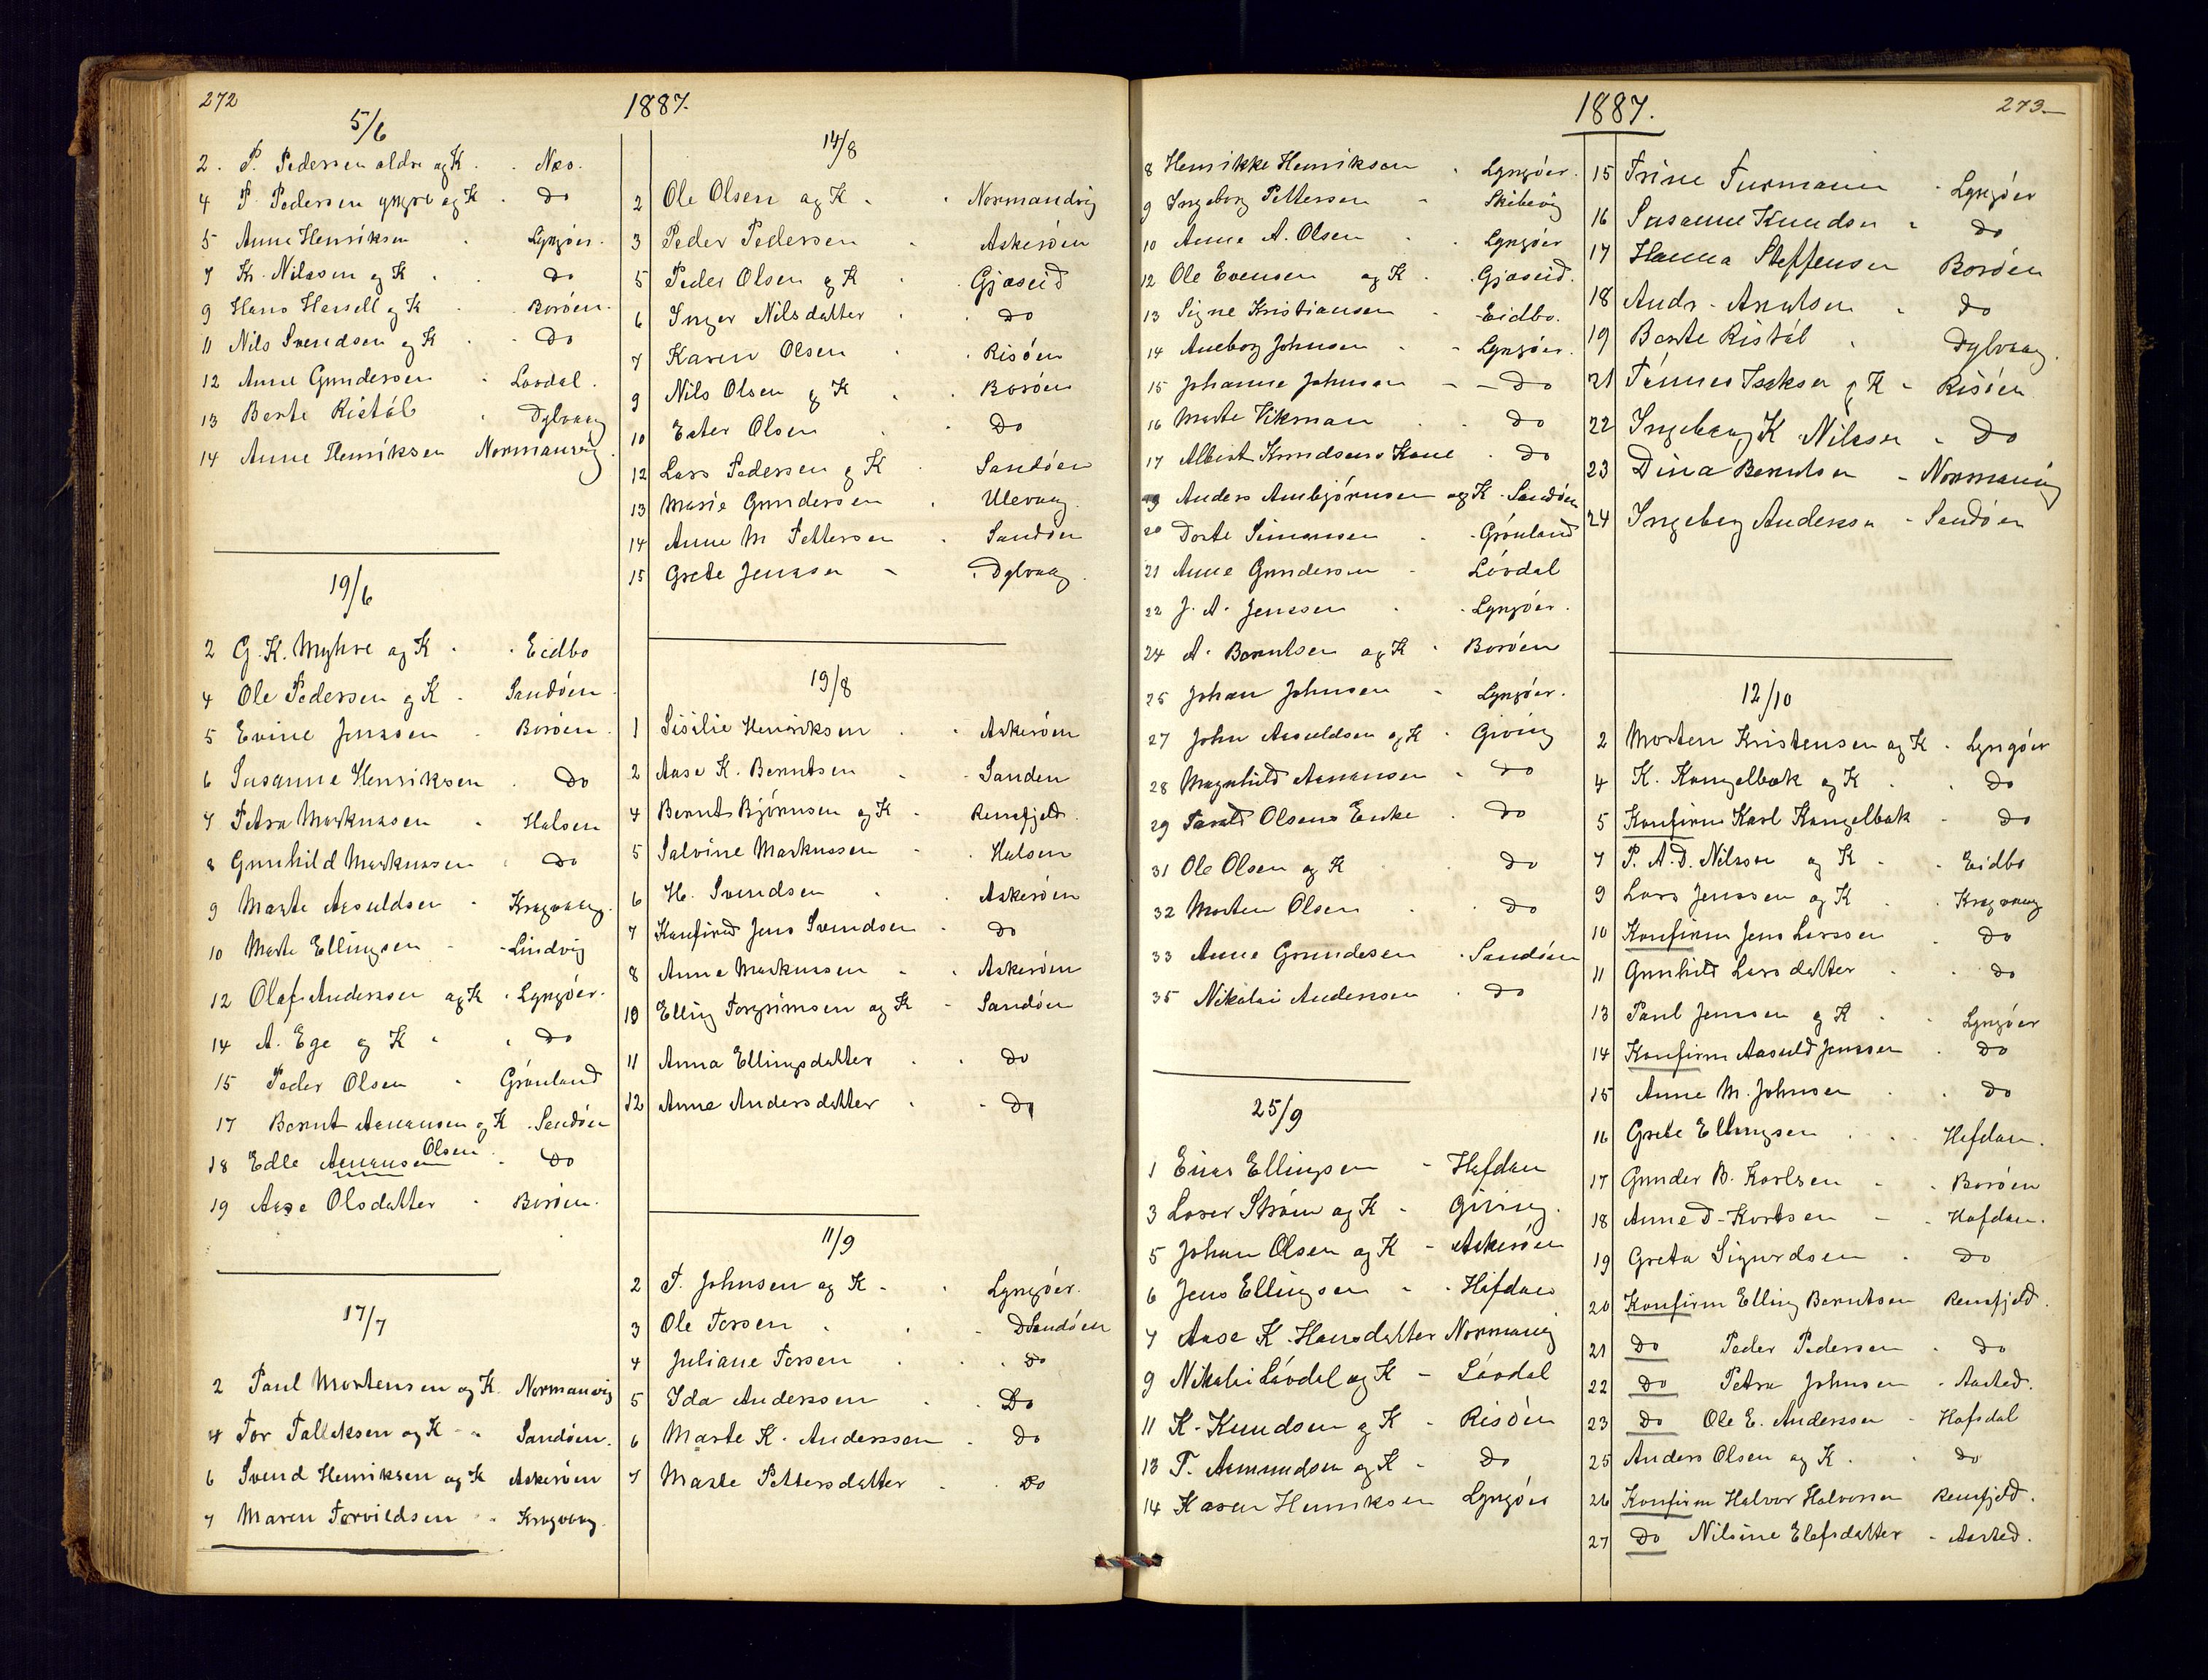 272
1887.
5/6
2. P. Pedersen aldre og K. Næs.
4 P. Pedersen yngre og K. Do
5 Anne Henriksen Lyngöer.
7 Kr. Nilssen og K. Do
9 Hans Hansell og K Boröen.
11 Nils Svendsen og K. Do
12 Anne Gundersen Lövdal.
13 Berte Ristöl Dylvaag
14 Anne Henriksen Normanvig.
19/6
2 G. K. Myhre og K. Eidbo
4 Ole Pedersen og K. Sandöen.
5 Evine Jenssen Boröen.
6 Susanne Henriksen Do
7 Petra Markussen Halsen
8 Gunhild Markussen Do
9 Marte Aasuldsen Kragvaag.
10 Marte Ellingsen Lindvig
12 Olaf Anderssen og K. Lyngöer.
14 A. Ege og K. Do
15 Peder Olsen Grönland
17 Bernt Aanensen og K. Sandöen
18 Edle Aanensen Olsen. Do
19 Aase Olsdatter Boröen.
17/7
2 Paul Mortensen og K. Normanvig
4 Tor Tallaksen og K Sandöen.
6 Svend Henriksen og K Askeröen
7 Maren Torvildsen Kragvaag.
14/8
2 Ole Olsen og K. Normandvig
3 Peder Pedersen Askeröen
5 Peder Olsen og K Gjæseid
6 Inger Nilsdatter Do
7 Karen Olsen Risöen
9 Nils Olsen og K. Boröen
10 Ester Olsen Do
12 Lars Pedersen og K Sandöen
13 Marie Gundersen Ulevaag.
14 Anne M Pettersen Sandöen
15 Grete Jenssen Dylvaag.
19/8
1 Sisilie Henriksen Askeröen
2 Aase K. Berntsen Sanden
4 Bernt Björnsen og K. Rensfjeld.
5 Salvine Markussen Halsen
6 H. Svendsen Askeröen
7 Konfirmd Jens Svendsen Do
8 Anne Markussen Askeröen
10 Elling Torgrimsen og K Sandöen
11 Anna Ellingsdatter Do
12 Anne Andersdatter Do
11/9
2 T. Johnsen og K. Lyngöer.
3 Ole Torsen Sandöen
4 Juliane Torsen Do
5 Ida Anderssen Do
6 Marte K. Anderssen Do
7 Marte Pettersdatter Do
1887.
273.
8 Henrikke Henriksen Lyngöer.
9 Ingeborg Pettersen Skibevig
10 Anne A. Olsen Lyngöer
12 Ole Evensen og K. Gjæseid.
13 Signe Kristiansen Eidbo.
14 Aneborg Johnsen Lyngöer.
15 Johanne Johnsen Do
16 Marte Vikman Do
17 Albert Knudsens Kone Do
19 Anders Anbjörnsen og K. Sandöen
20 Dorte Simonsen Grönland
21 Anne Gundersen Lövdal
22 J. A. Jenssen Lyngöer.
24 A. Berntsen og K. Boröen
25 Johan Johnsen Lyngöer.
27 John Aasuldsen og K. Giving
28 Magnhild Aanensen Do
29 Tarald Olsens Enke Do
31 Ole Olsen og K Do
32 Morten Olsen Do
33 Anne Gundesen Sandöen
35 Nikolai Anderssen Do
25/9
1 Einar Ellingsen Hafdan
3 Laser Ström og K. Giving.
5 Johan Olsen og K Askeröen
6 Jens Ellingsen Hafdan
7 Aase K. Hansdatter Normanvig
9 Nikolai Lövdal og K Lövdal
11 K. Knudsen og K. Risöen
13 T. Aamundsen og K. Do
14 Karen Henriksen Lyngöer
15 Trine Furmann Lyngöer
16 Susanne Knudsen Do
17 Hanna Steffensen Boröen
18 Andr. Knutsen Do
19 Berte Ristöl Dylvaag.
21 Tönnes Isaksen og K Risöen
22 Ingeborg K Nilssen Do
23 Dina Berntsen Normanvig
24 Ingeborg Anderssen Sandöen
12/10
2 Morten Kristensen og K. Lyngöer
4 K. Kongelbæk og K Do
5 Konfirm Karl Kongelbak Do
7 P. A. D. Nilssen og K. Eidbo
9 Lars Jenssen og K Kragvaag
10 Konfirm Jens Larssen Do
11 Gunhild Larsdatter Do
13 Paul Jenssen og K. Lyngöer
14 Konfirm Aasuld Jenssen Do
15 Anne M. Johnsen Do
16 Grete Ellingsen Hafdan.
17 Gunder B. Karlsen Boröen
18 Anne D. Kortsen Hafdan.
19 Greta Sigurdsen Do
20 Konfirm Elling Berntsen Rensfjeld.
21 Do Peder Pedersen Do
22 Do Petra Johnsen Aasted.
23 Do Ole E. Anderssen Hafsdal
25 Anders Olsen og K. Do
26 Konfirm Halvor Halvorsen Rensfjeld.
27 Do Nilsine Elefsdatter Aasted.